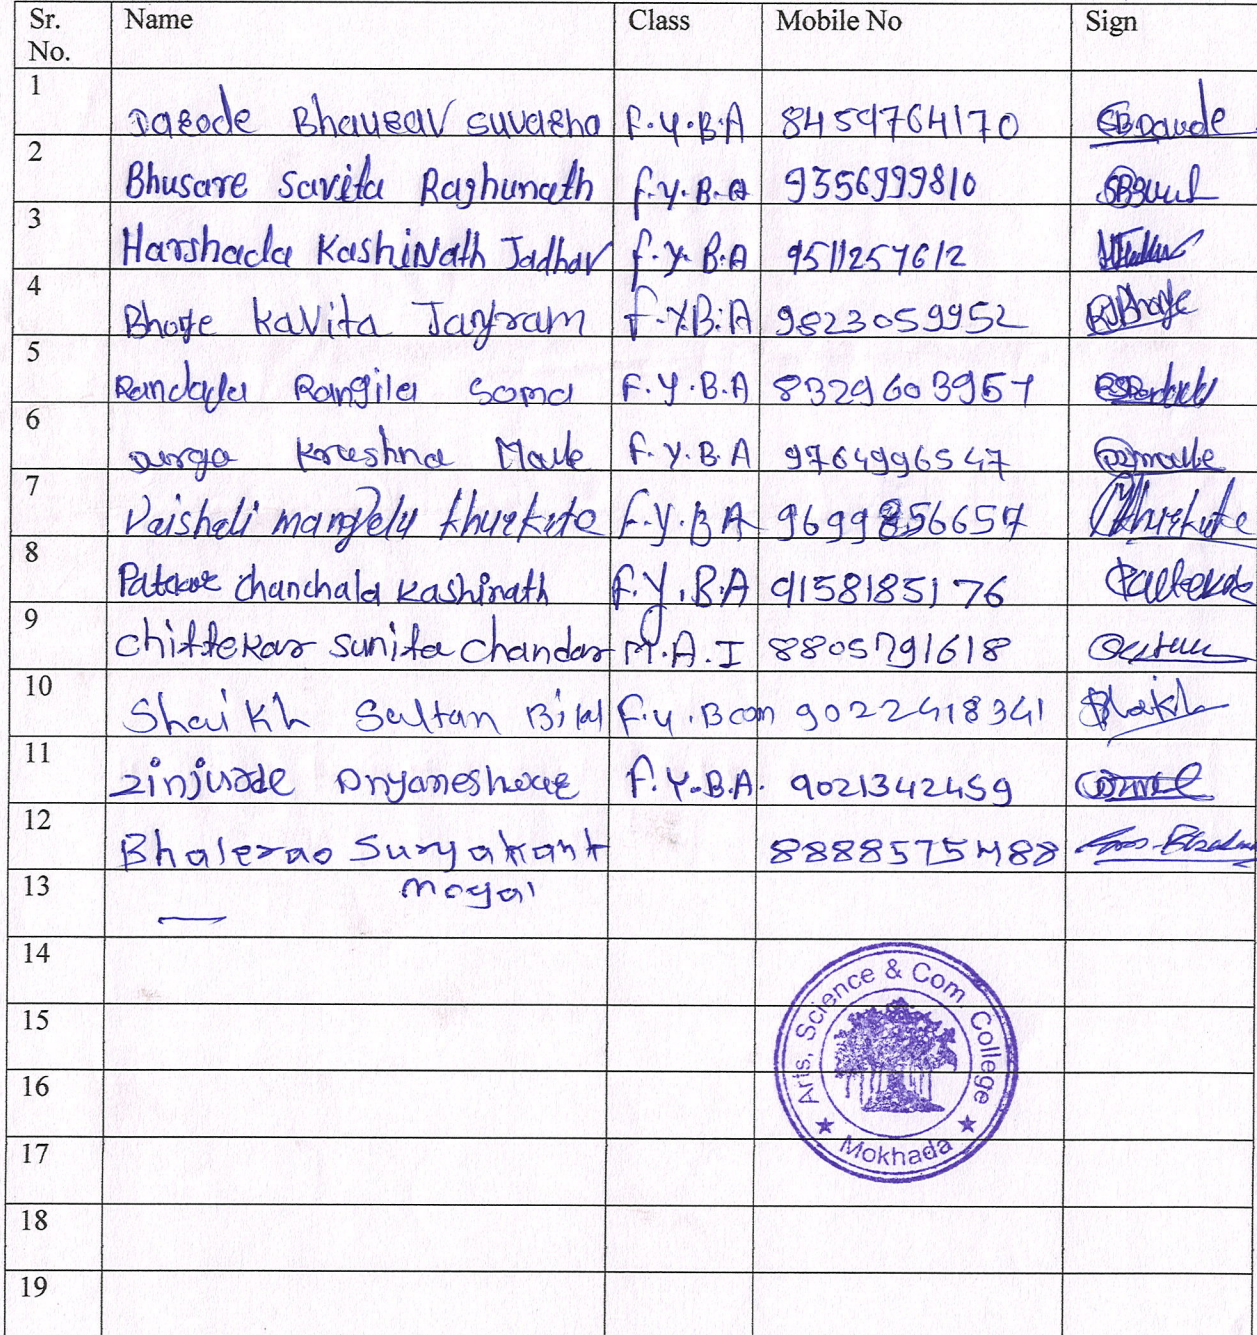 Sr. No. Name Class Mobile No Sign
1 Darode Bhaurav suvarna F.Y.B.A 8459764170
2 Bhusare Savita Raghunath F.Y.B.A 9356999810
3 Harshada Kashinath Jadhav F.Y.B.A 9511257612
4 Bhoye Kavita Jayram F.Y.B.A 9823059952 Bhoye
5 Randada Rangila Soma F.Y.B.A 8329603957
6 Durga Krushna Maule F.Y.B.A 9764996547
7 Vaishali Khurkute F.Y.B.A 9699856657 Khurkute
8 chanchala Kashinath F.Y.B.A 9158185176
9 Chittekar Sunita Chandar M.A.I 8805791618
10 Shaikh Sultan Bilal F.Y.Bcom 9022418341 Shaikh
11 Zinjurde Dnyaneshwar F.Y.B.A. 9021342459
12 Bhalerao Suryakant 8888575488
13 mogal
14
15
16
17
18
19
Arts, Science & Com. College
Mokhada